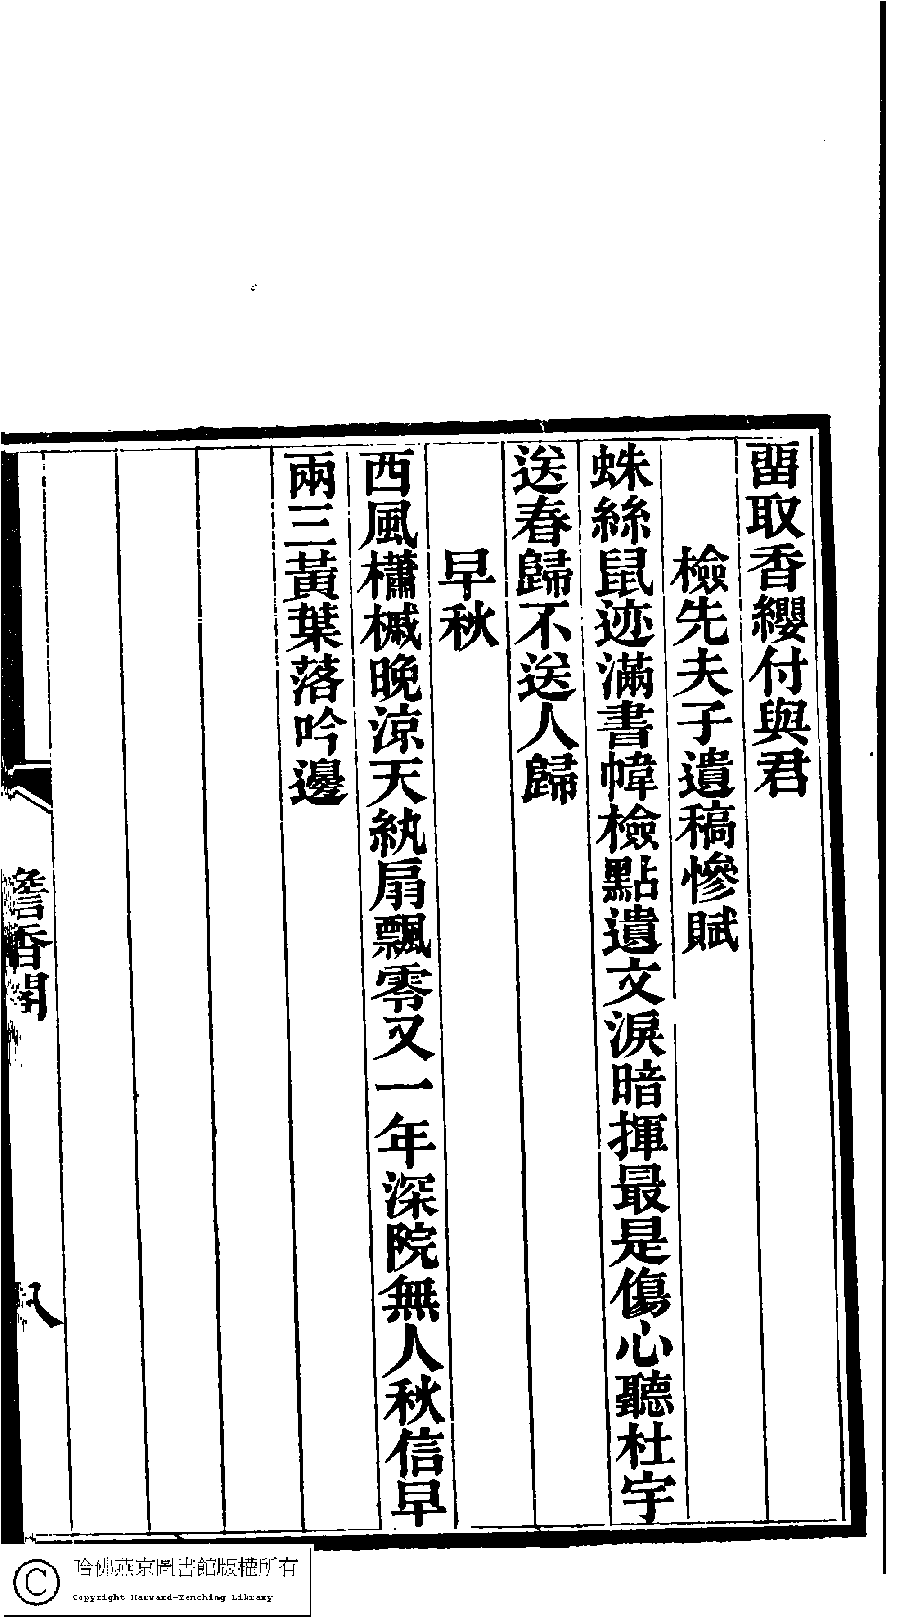 畱取香纓付與君
檢先夫子遺稿慘賦
蛛絲鼠迹滿書幃檢點遺文淚暗揮最是傷心聽杜宇
送春歸不送人歸
早秋
西風櫹槭晚涼天紈扇飄零又一年深院無人秋信早
兩三黃葉落吟邊
香閣
八
哈佛燕京圖書館版權所有
Copyright Harvard-Yenching Library